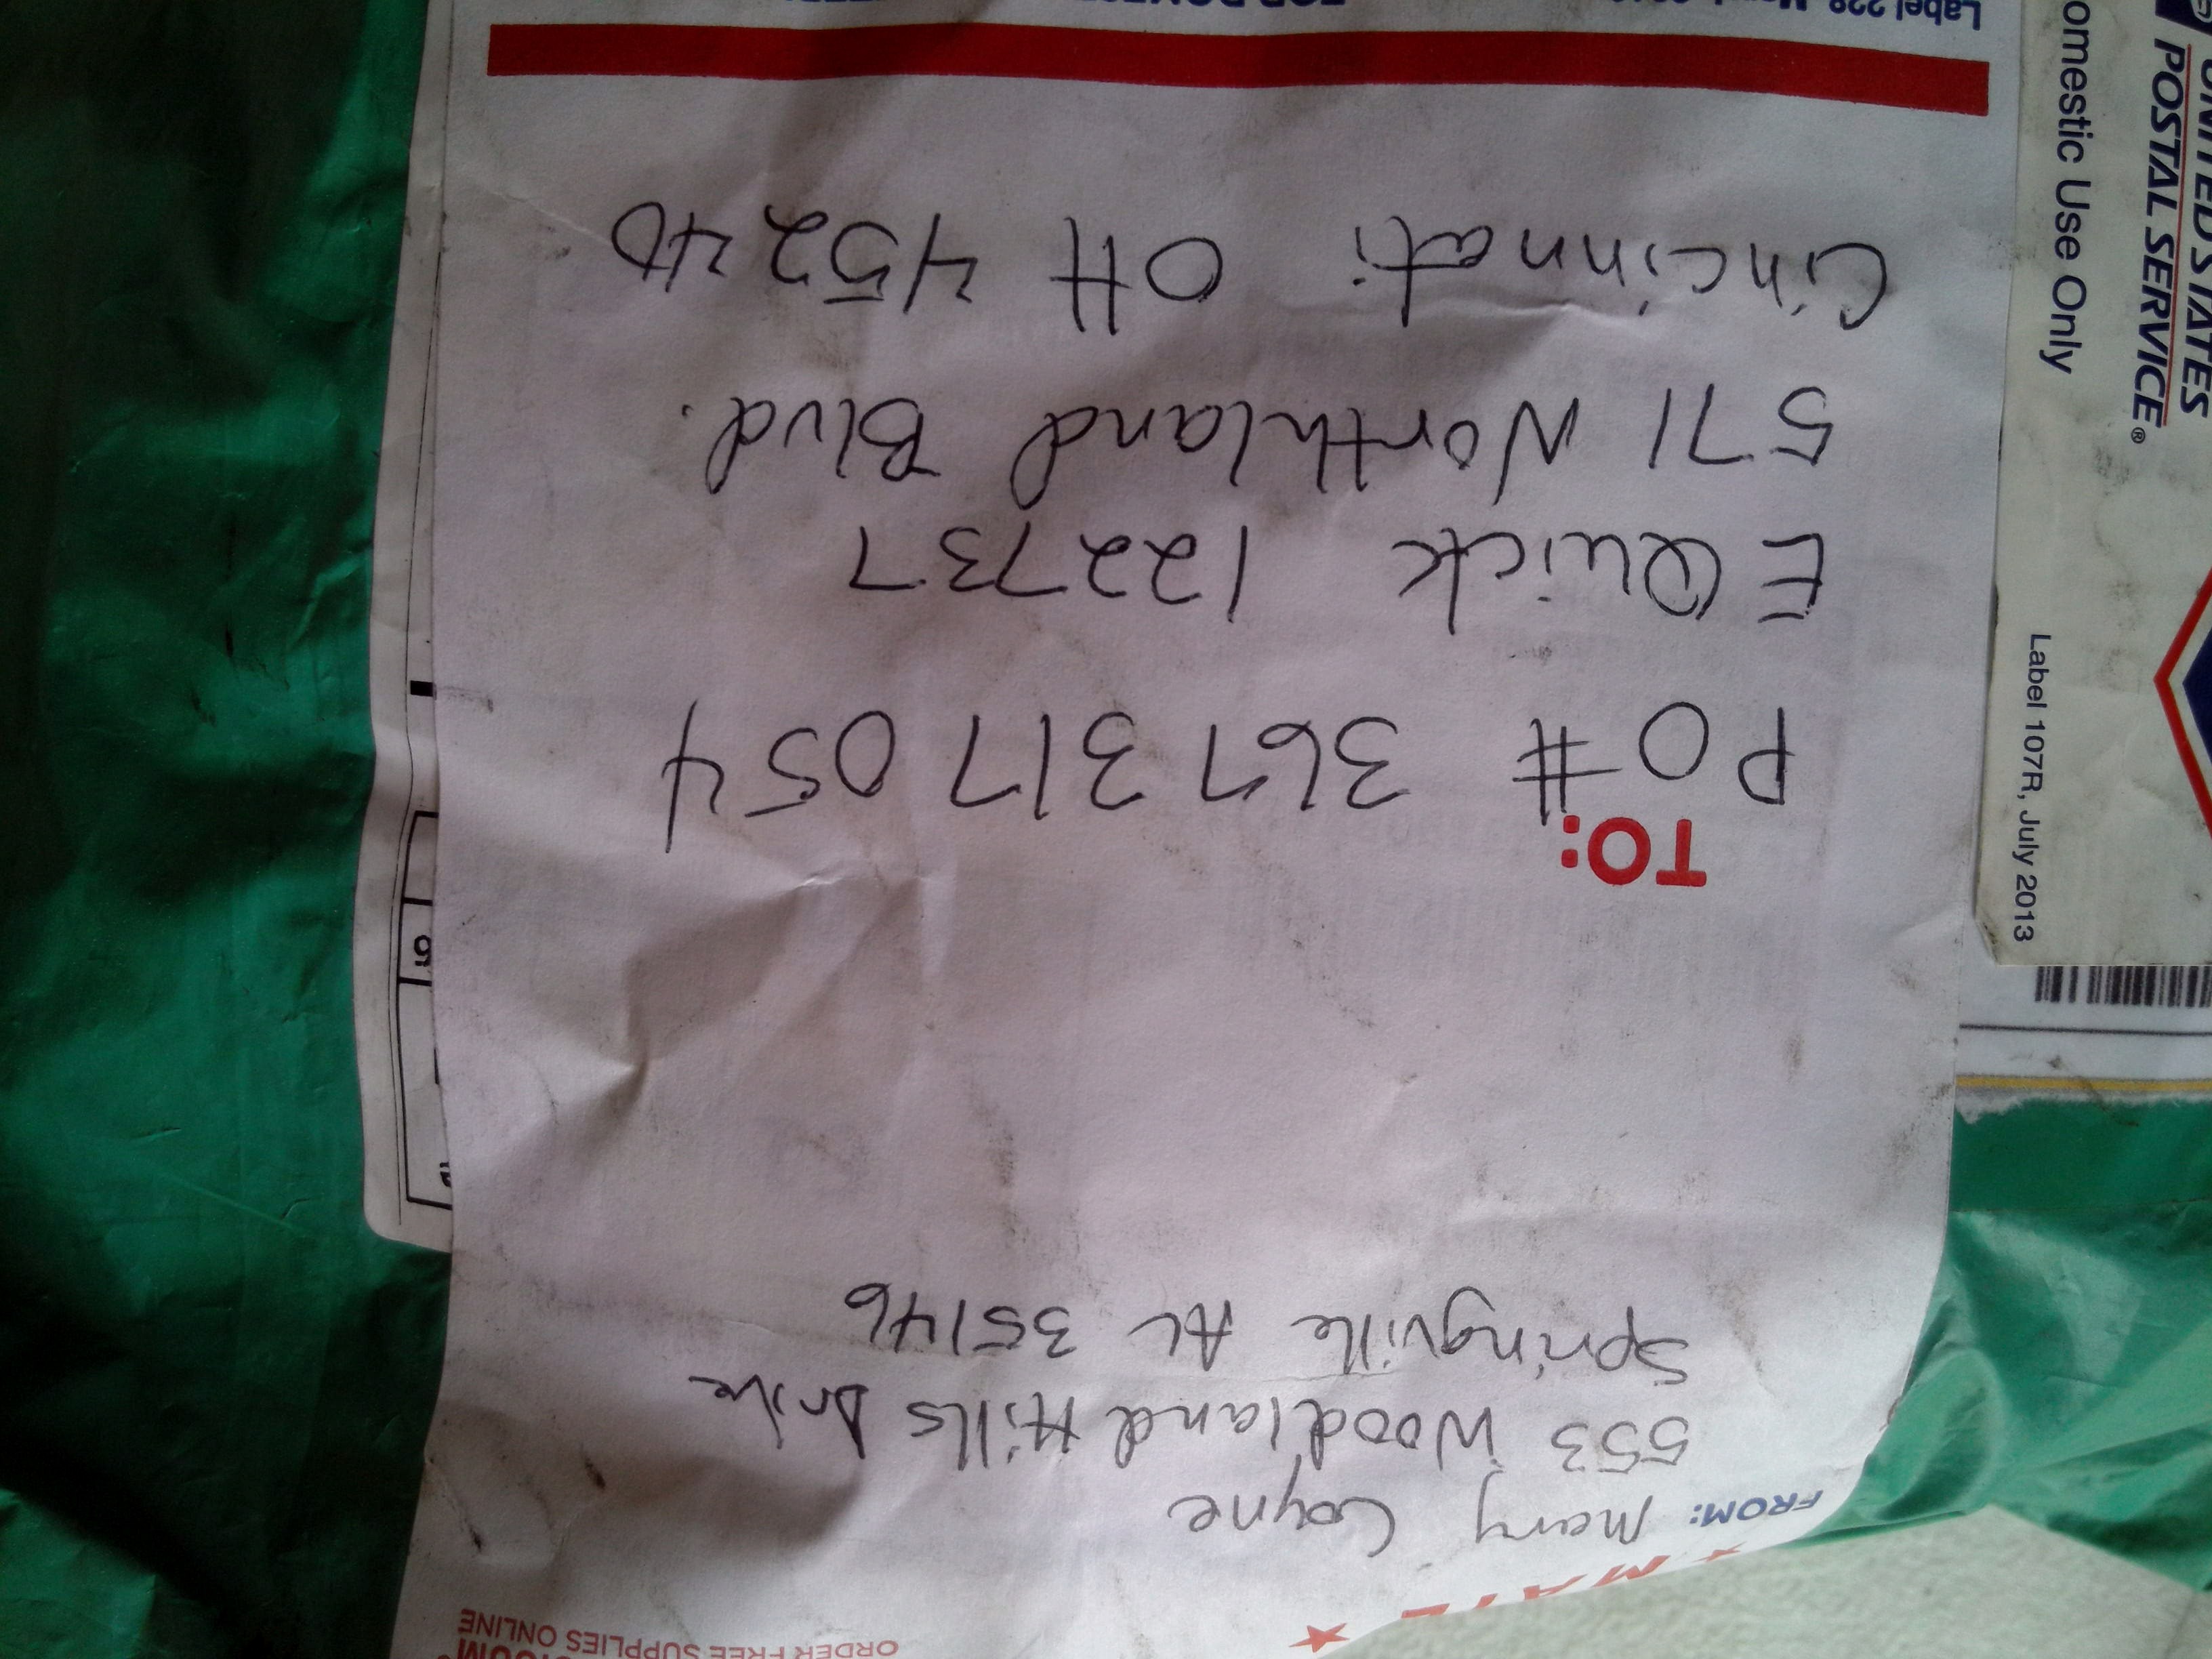 ORDER FREE SUPPLIES ONLINE
FROM: Mary Coyne
553 Woodland Hills Drive
Springville AL 35146
TO:
PO # 367 317 054
EQuick 122737
571 Northland Blvd.
Cincinnati OH 45240
UNITED STATES
POSTAL SERVICE®
omestic Use Only
Label 107R, July 2013